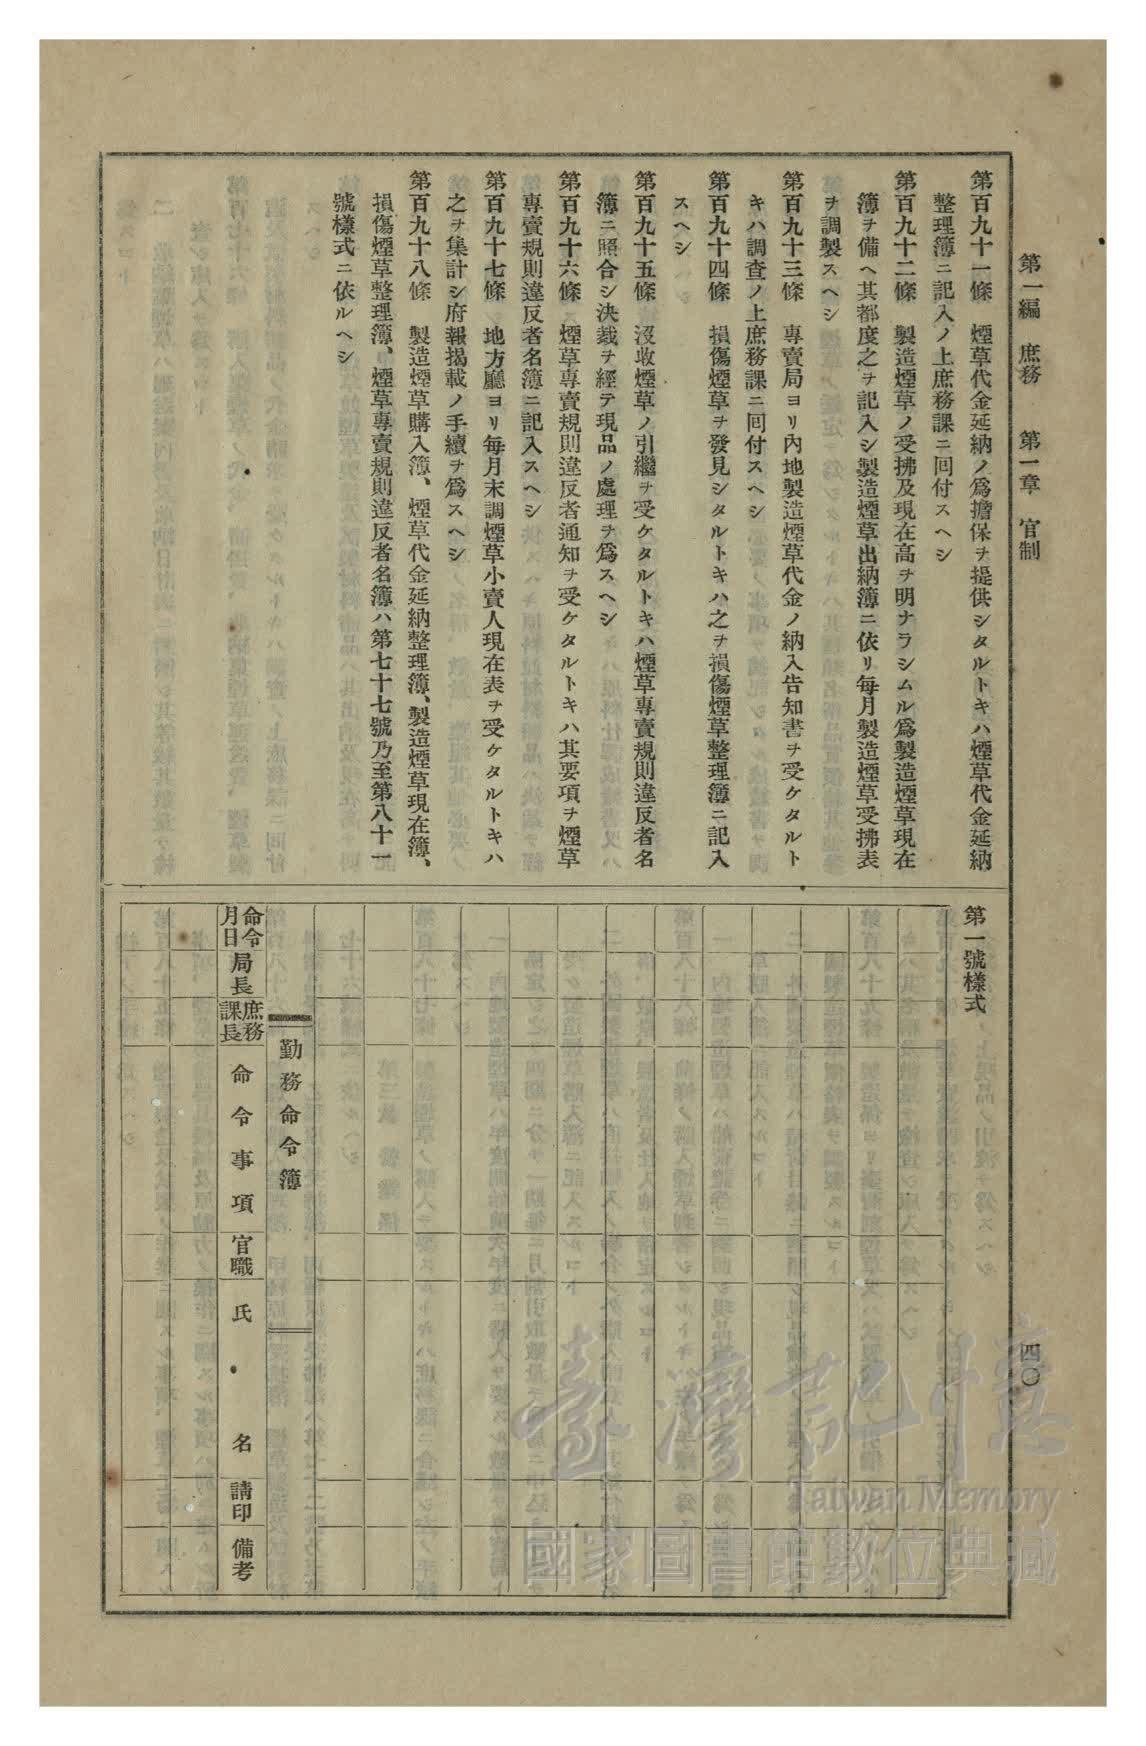 第一編 庶務 第一章 官制
四〇
第百九十一條 煙草代金延納ノ爲擔保ヲ提供シタルトキハ煙草代金延納
整理簿ニ記入ノ上庶務課ニ回付スヘシ
第百九十二條 製造煙草ノ受拂及現在高ヲ明ナラシムル爲製造煙草現在
簿ヲ備ヘ其都度之ヲ記入シ製造煙草出納簿ニ依リ每月製造煙草受拂表
ヲ調製スヘシ
第百九十三條 專賣局ヨリ內地製造煙草代金ノ納入告知書ヲ受ケタルト
キハ調査ノ上庶務課ニ回付スヘシ
第百九十四條 損傷煙草ヲ發見シタルトキハ之ヲ損傷煙草整理簿ニ記入
スヘシ
第百九十五條 沒收煙草ノ引繼ヲ受ケタルトキハ煙草專賣規則違反者名
簿ニ照合シ決裁ヲ經テ現品ノ處理ヲ爲スヘシ
第百九十六條 煙草專賣規則違反者通知ヲ受ケタルトキハ其要項ヲ煙草
專賣規則違反者名簿ニ記入スヘシ
第百九十七條 地方廳ヨリ每月末調煙草小賣人現在表ヲ受ケタルトキハ
之ヲ集計シ府報揭載ノ手續ヲ爲スヘシ
第百九十八條 製造煙草購入簿、煙草代金延納整理簿、製造煙草現在簿、
損傷煙草整理簿、煙草專賣規則違反者名簿ハ第七十七號乃至第八十一
號樣式ニ依ルヘシ
第一號樣式
勤務命令簿
命令月日
局長
庶務課長
命令事項
官職
氏名
請印
備考
臺灣記憶
Taiwan Memory
國家圖書館數位典藏